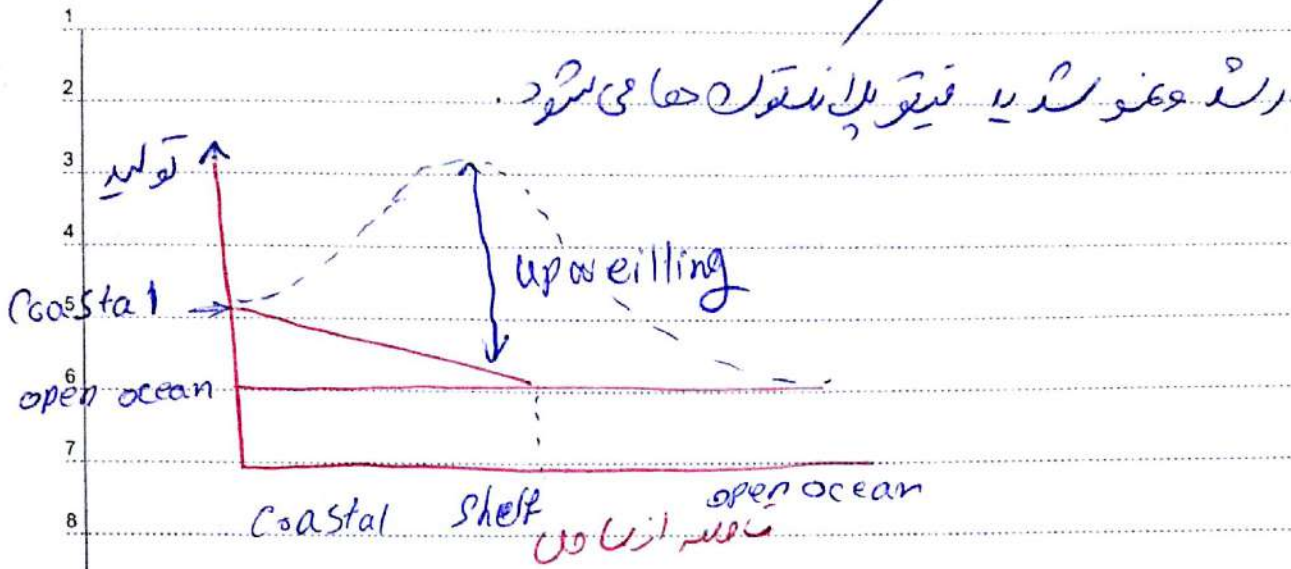 1
2
رشد و نمو شدید فیتوپلانکتون ها می شود.
3
تولید
4
upweilling
5
Coastal
6
open ocean
7
Coastal shelf open ocean
فاصله از ساحل
8